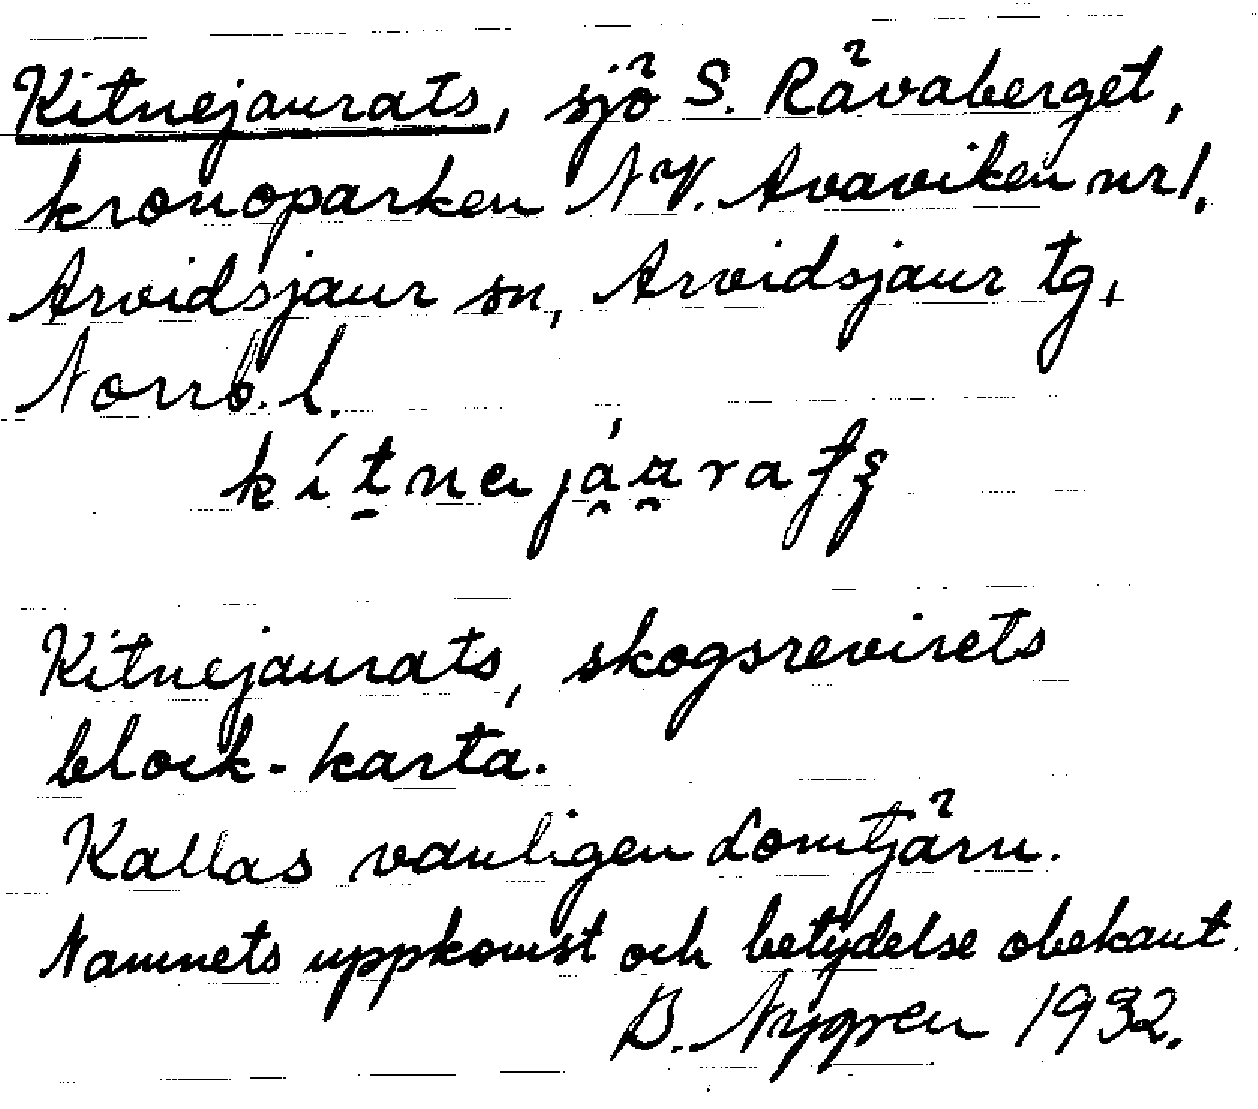 Kitnejaurats, sjö S. Råvaberget,
kronoparken NV. Avaviken nr 1.
Arvidsjaur sn, Arvidsjaur tg,
Norrb. l.
Kitnejaurats, skogsrevirets
block-karta.
Kallas vanligen Lomtjärn.
Namnets uppkomst och betydelse obekant.
B. Nygren 1932.